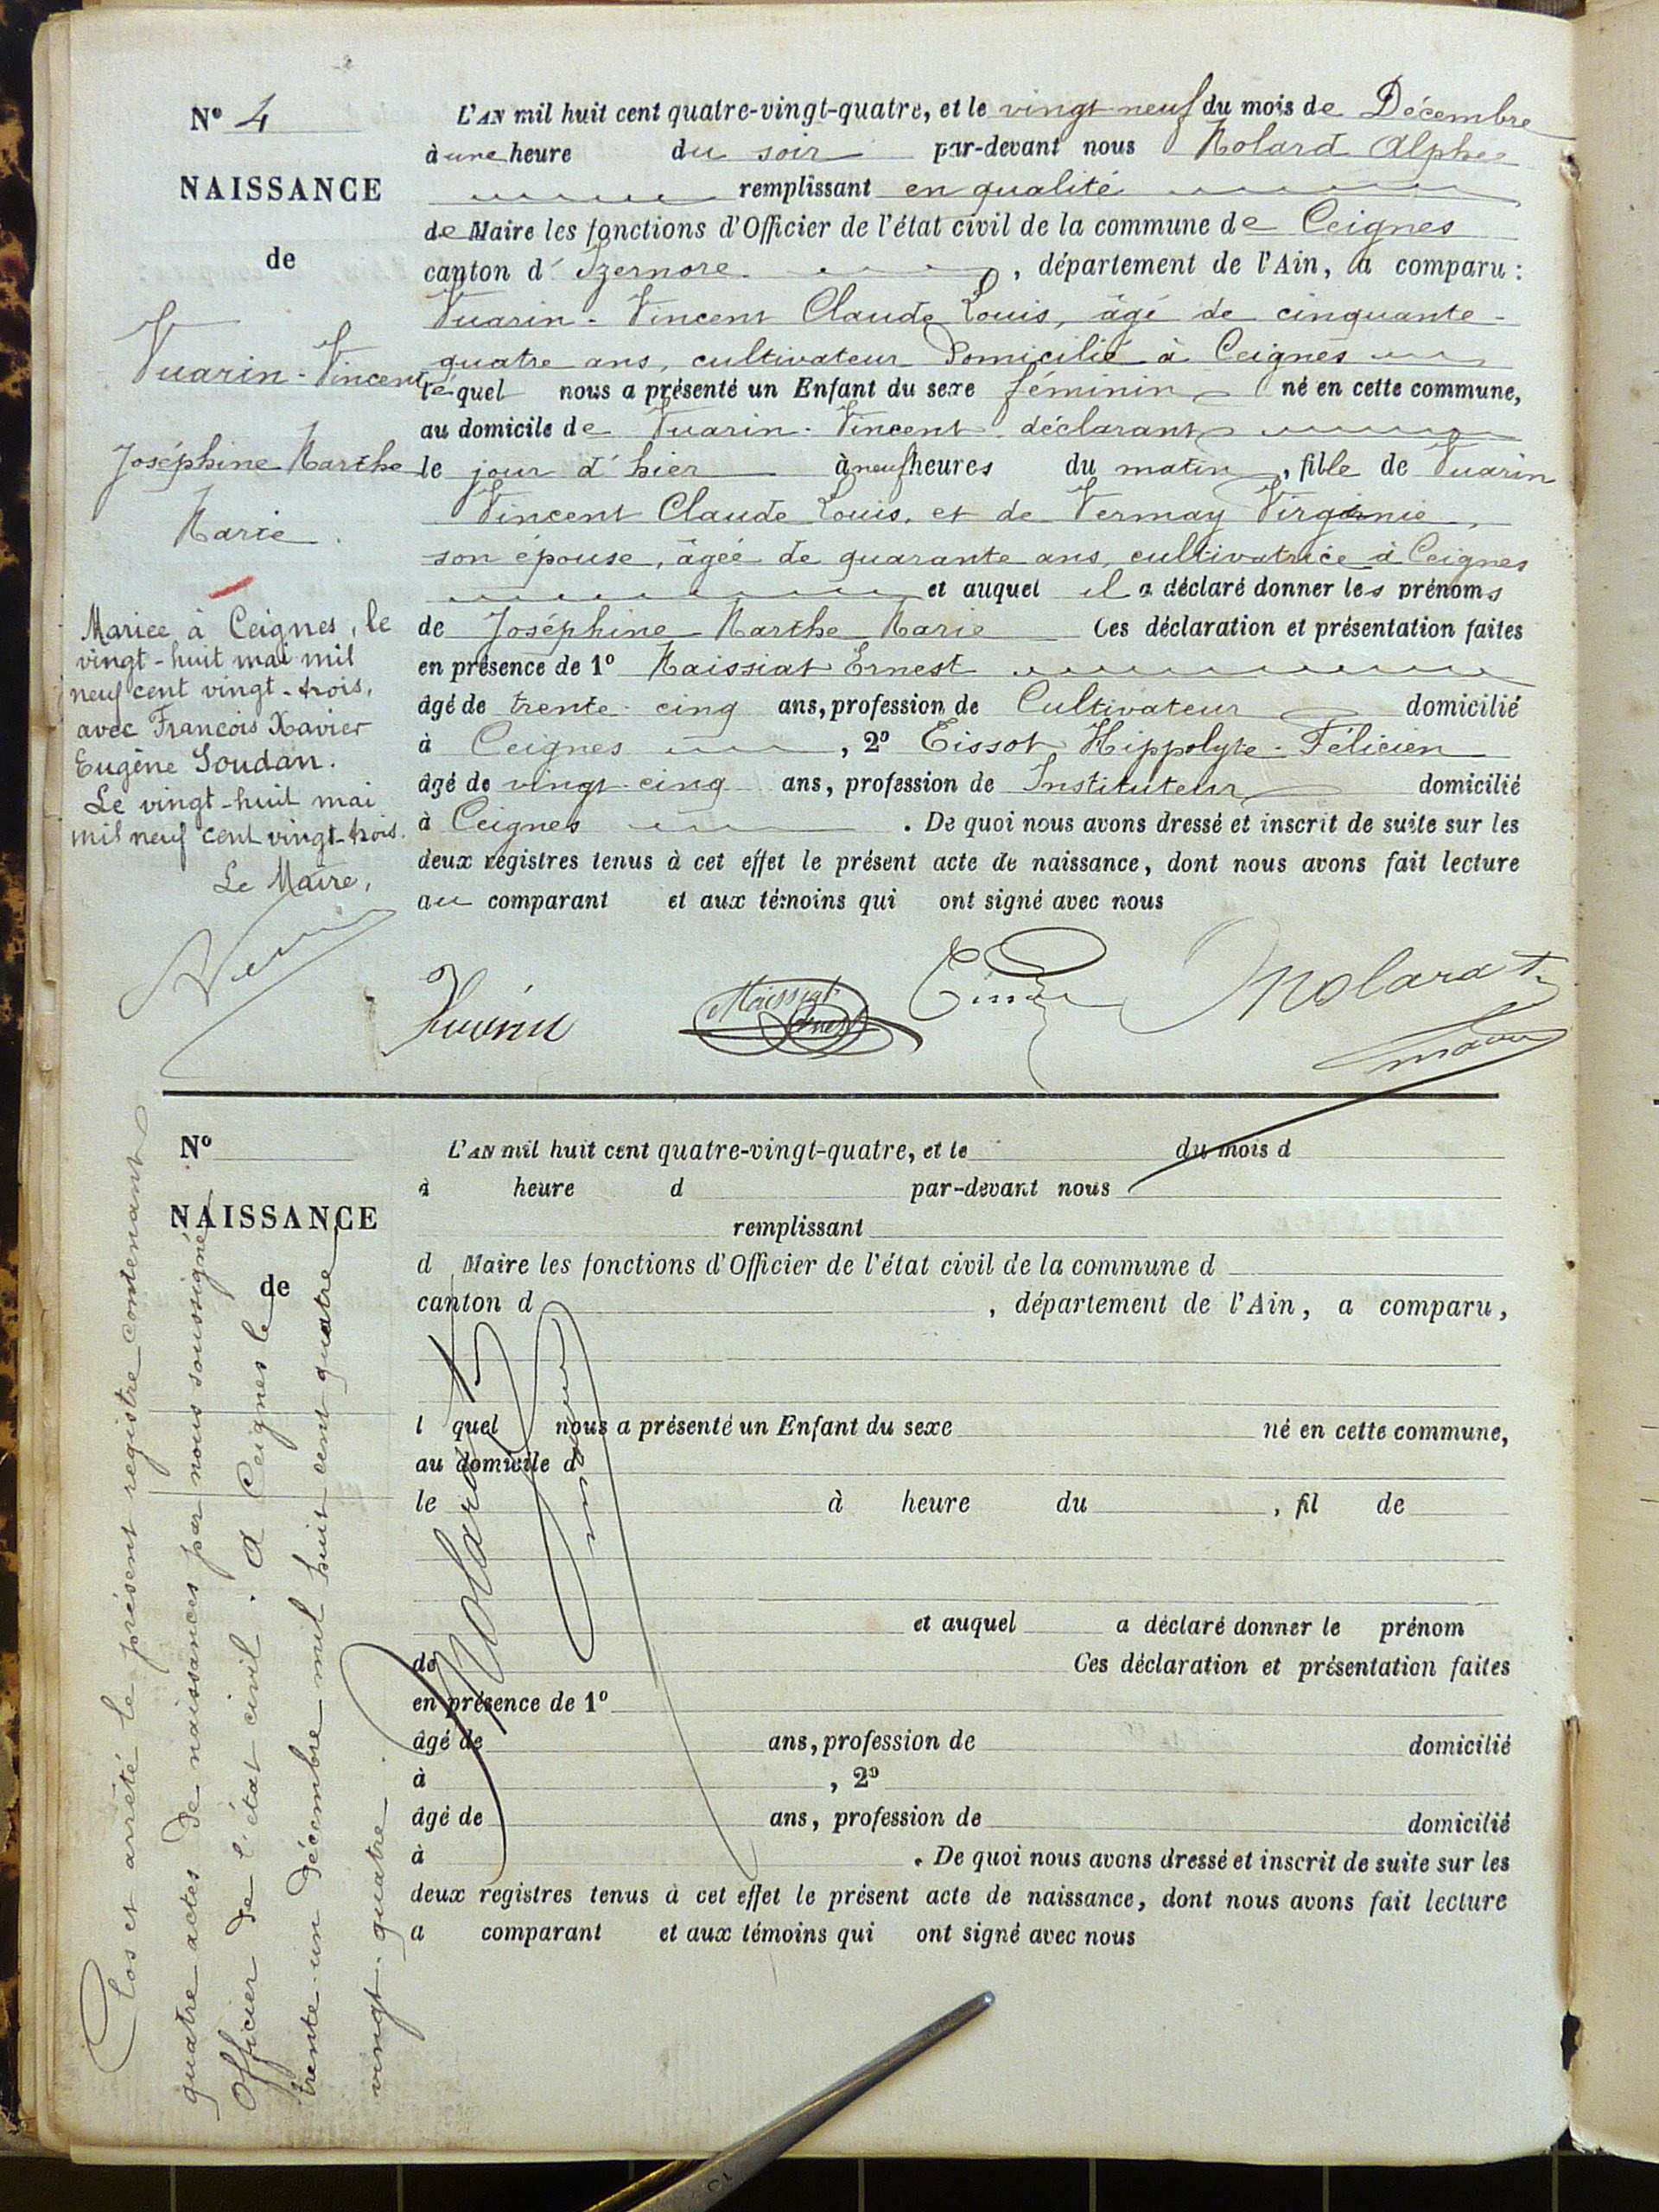 N° 4
NAISSANCE
de
Vuarin-Vincent
Joséphine Marthe
Marie.
Mariée à Ceignes, le
vingt-huit mai mil
neuf cent vingt-trois,
avec François Xavier
Eugène Goudan.
Le vingt-huit mai
mil neuf cent vingt-trois.
Le Maire,
L'AN mil huit cent quatre-vingt-quatre, et le vingt neuf du mois de Décembre
à une heure du soir par-devant nous Molard Alphée
remplissant en qualité
de Maire les fonctions d'Officier de l'état civil de la commune de Ceignes
canton d'Izernore, département de l'Ain, a comparu :
Vuarin-Vincent Claude Louis, âgé de cinquante-
quatre ans, cultivateur domicilié à Ceignes
lequel nous a présenté un Enfant du sexe féminin né en cette commune,
au domicile de Vuarin-Vincent déclarant
le jour d'hier à neuf heures du matin, fille de Vuarin
Vincent Claude Louis, et de Vermay Virginie,
son épouse, âgée de quarante ans, cultivatrice à Ceignes
et auquel il a déclaré donner les prénoms
de Joséphine Marthe Marie Ces déclaration et présentation faites
en présence de 1° Maissiat Ernest
âgé de trente-cinq ans, profession de Cultivateur domicilié
à Ceignes, 2° Eissot Hippolyte-Félicien
âgé de vingt-cinq ans, profession de Instituteur domicilié
à Ceignes. De quoi nous avons dressé et inscrit de suite sur les
deux registres tenus à cet effet le présent acte de naissance, dont nous avons fait lecture
au comparant et aux témoins qui ont signé avec nous
Maissiat Ernest
Molard
maire
N°
NAISSANCE
de
L'AN mil huit cent quatre-vingt-quatre, et le du mois d
à heure d par-devant nous
remplissant
d Maire les fonctions d'Officier de l'état civil de la commune d
canton d , département de l'Ain, a comparu,
l quel nous a présenté un Enfant du sexe né en cette commune,
au domicile d
le à heure du , fil de
et auquel a déclaré donner le prénom
de Ces déclaration et présentation faites
en présence de 1°
âgé de ans, profession de domicilié
à , 2°
âgé de ans, profession de domicilié
à . De quoi nous avons dressé et inscrit de suite sur les
deux registres tenus à cet effet le présent acte de naissance, dont nous avons fait lecture
a comparant et aux témoins qui ont signé avec nous
Clos et arrêté le présent registre contenant
quatre actes de naissances par nous soussigné
Officier de l'état civil. A Ceignes le
trente-un décembre mil huit cent quatre
vingt-quatre.
Molard
maire